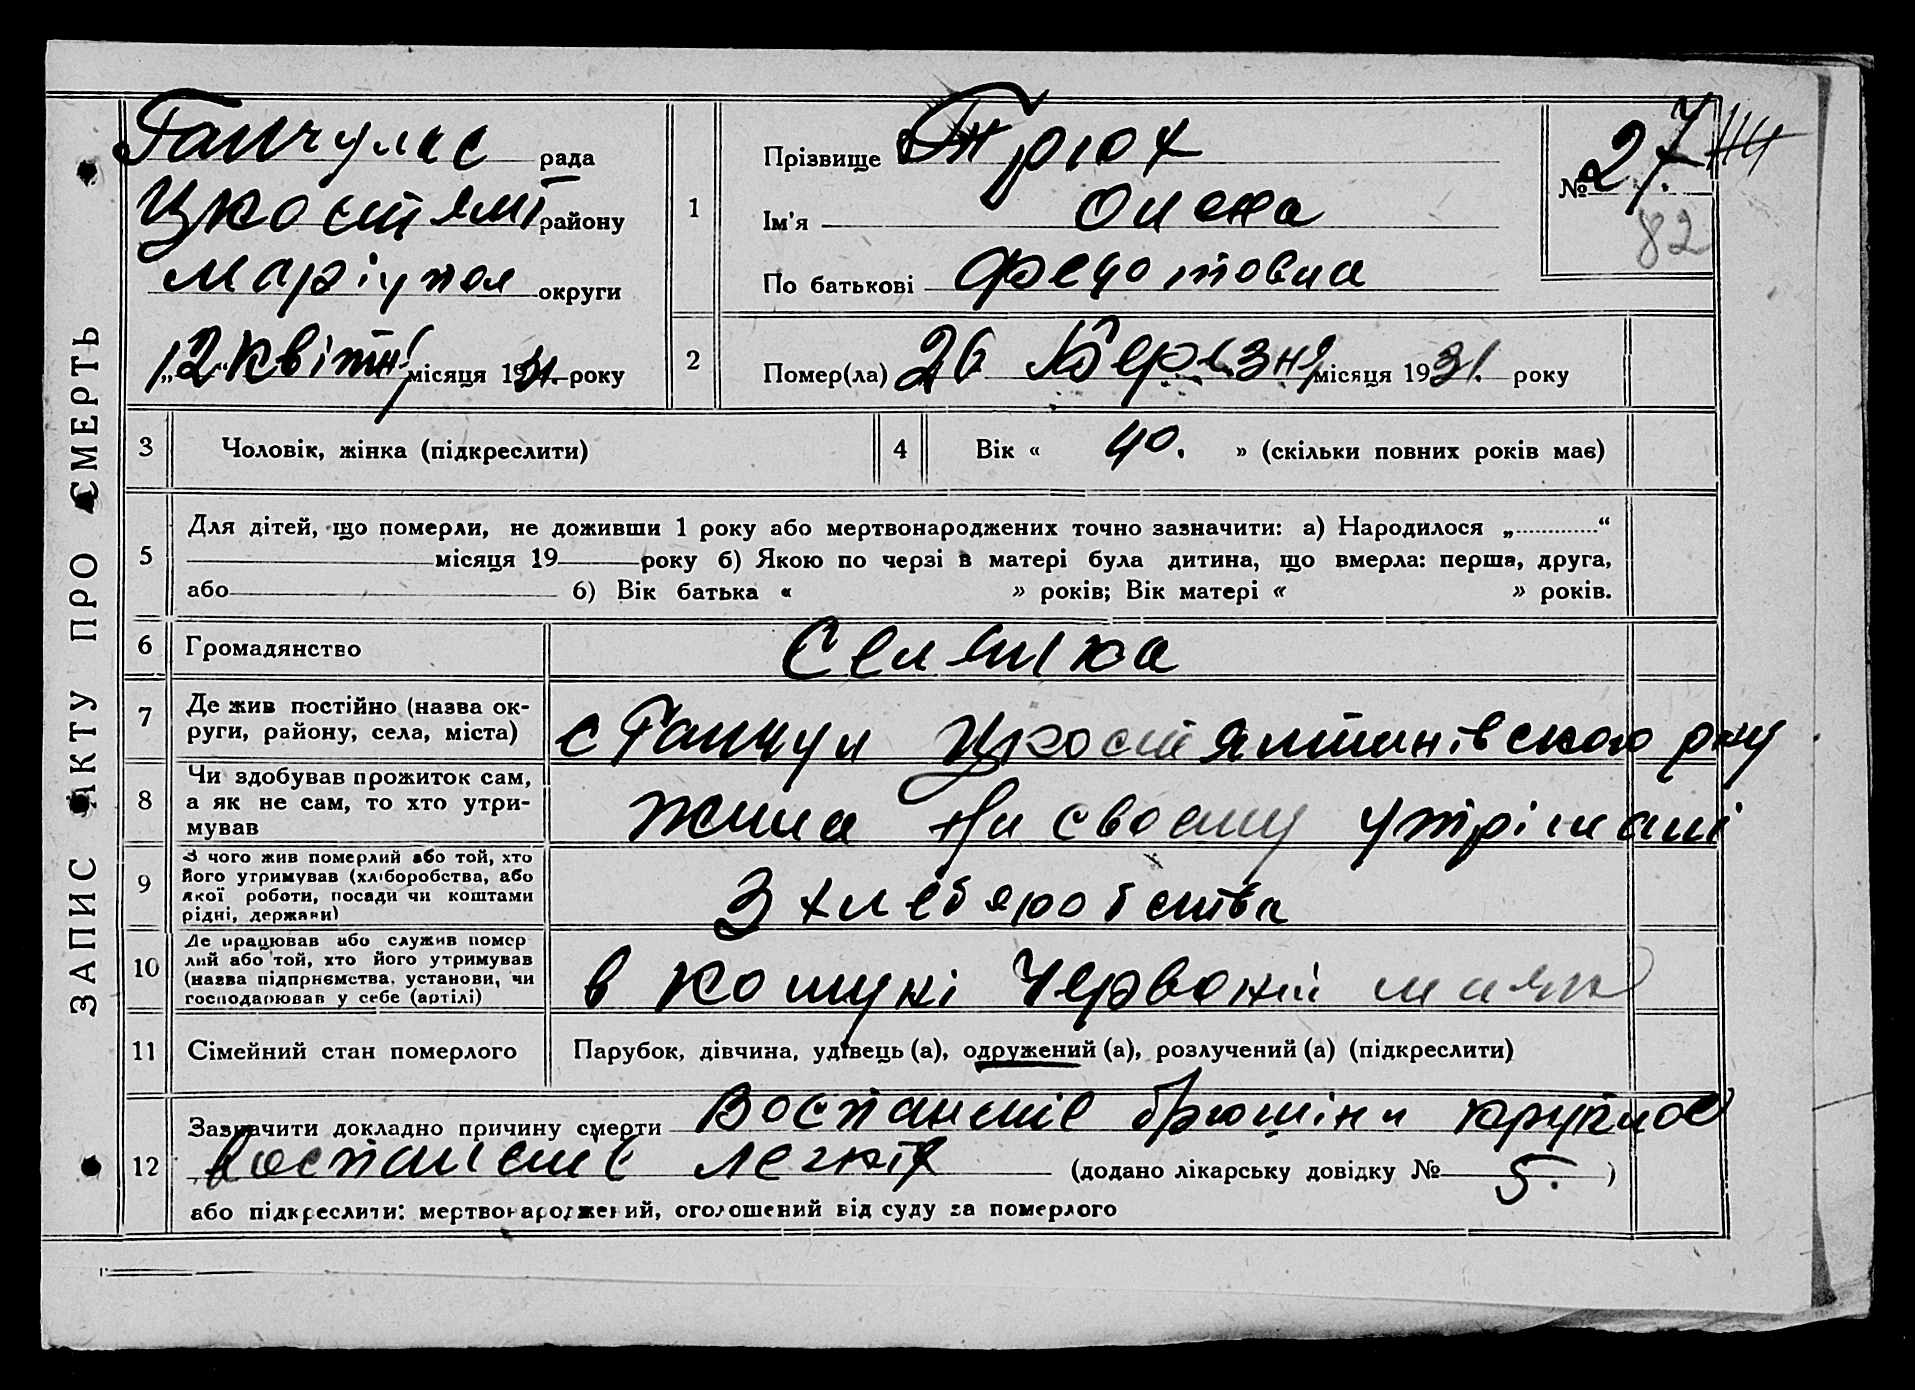 ЗАПИС АКТУ ПРО СМЕРТЬ
Ганчулськ рада
Цкостямт району
Маріупол округи
„12“ квітня місяця 1931 року
1
Прізвище Трюх
Ім'я Олена
По батькові Федотовна
№ 27.
82
2
Помер(ла) 26 Березня місяця 1931. року
3 Чоловік, жінка (підкреслити)
4 Вік « 40. » (скільки повних років має)
5 Для дітей, що померли, не доживши 1 року або мертвонароджених точно зазначити: а) Народилося „ “
місяця 19 року б) Якою по черзі в матері була дитина, що вмерла: перша, друга,
або б) Вік батька « » років; Вік матері « » років.
6 Громадянство Селянка
7 Де жив постійно (назва ок-
руги, району, села, міста)
с Ганчул
8 Чи здобував прожиток сам,
а як не сам, то хто утри-
мував
жила на своему утрімані
9 З чого жив померлий або той, хто
його утримував (хліборобства, або
якої роботи, посади чи коштами
рідні, держави)
З хлеборобства
10 Де працював або служив помер
лий або той, хто його утримував
(назва підприємства, установи, чи
господарював у себе (артілі)
в комуні Червоний маяк
11 Сімейний стан померлого Парубок, дівчина, удівець (а), одружений (а), розлучений (а) (підкреслити)
12 Зазначити докладно причину смерти Воспаление брюшіни крупное
Воспаление легкіх (додано лікарську довідку № 5. )
або підкреслити: мертвонароджений, оголошений від суду за померлого